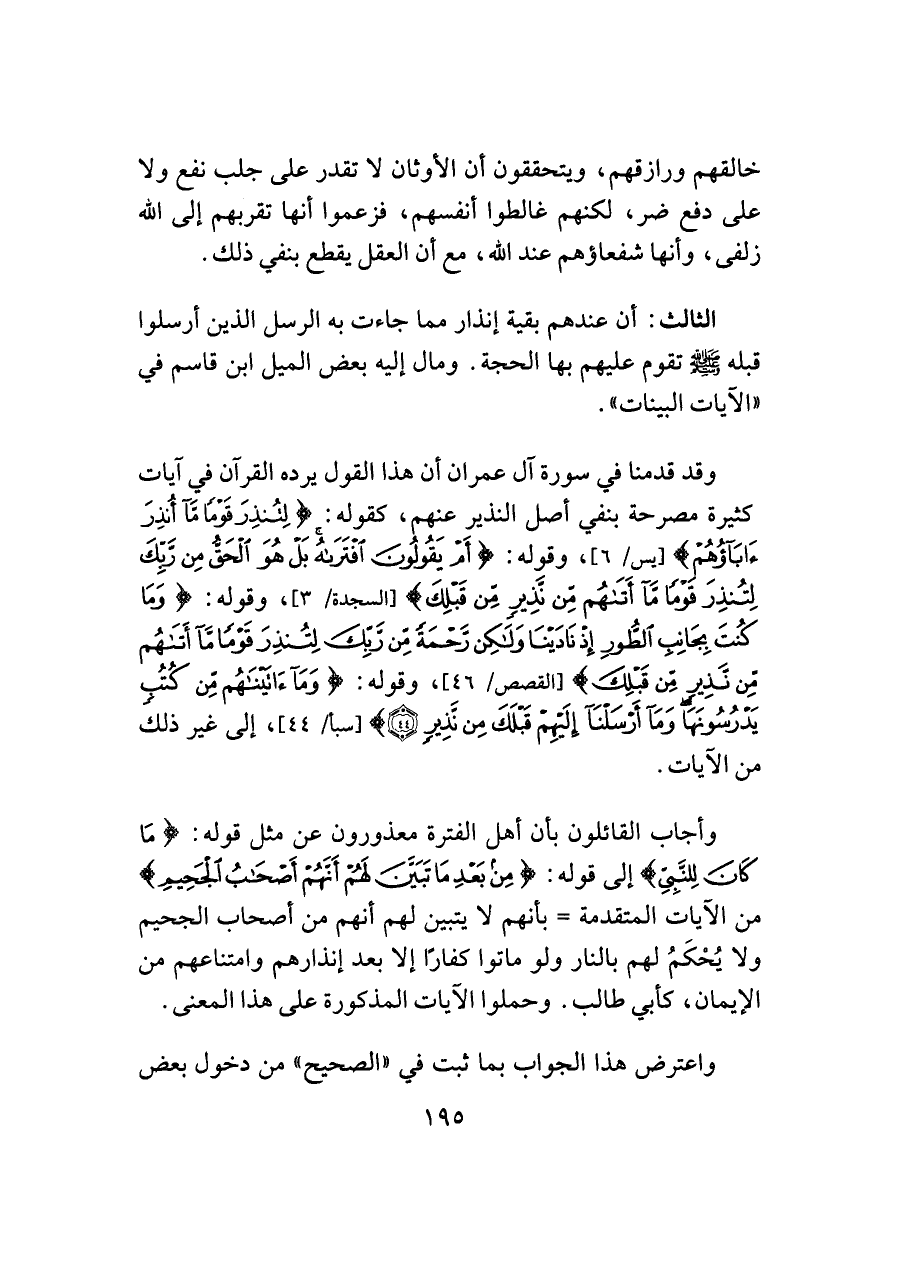 خالقهم ورازقهم، ويتحققون أن الأوثان لا تقدر على جلب نفع ولا
على دفع ضر، لكنهم غالطوا أنفسهم، فزعموا أنها تقربهم إلى الله
زلفى، وأنها شفعاؤهم عند الله، مع أن العقل يقطع بنفي ذلك.
الثالث: أن عندهم بقية إنذار مما جاءت به الرسل الذين أرسلوا
قبله ﷺ تقوم عليهم بها الحجة. ومال إليه بعض الميل ابن قاسم في
«الآيات البينات».
وقد قدمنا في سورة آل عمران أن هذا القول يرده القرآن في آيات
كثيرة مصرحة بنفي أصل النذير عنهم، كقوله: ﴿لِتُنذِرَ قَوْمًا مَّآ أُنذِرَ
ءَابَآؤُهُمْ﴾ [يس/ ٦]، وقوله: ﴿أَمْ يَقُولُونَ ٱفْتَرَىٰهُ ۚ بَلْ هُوَ ٱلْحَقُّ مِن رَّبِّكَ
لِتُنذِرَ قَوْمًا مَّآ أَتَىٰهُم مِّن نَّذِيرٍ مِّن قَبْلِكَ﴾ [السجدة/ ٣]، وقوله: ﴿وَمَا
كُنتَ بِجَانِبِ ٱلطُّورِ إِذْ نَادَيْنَا وَلَٰكِن رَّحْمَةً مِّن رَّبِّكَ لِتُنذِرَ قَوْمًا مَّآ أَتَىٰهُم
مِّن نَّذِيرٍ مِّن قَبْلِكَ﴾ [القصص/ ٤٦]، وقوله: ﴿وَمَآ ءَاتَيْنَٰهُم مِّن كُتُبٍ
يَدْرُسُونَهَا ۖ وَمَآ أَرْسَلْنَآ إِلَيْهِمْ قَبْلَكَ مِن نَّذِيرٍ ٤٤﴾ [سبأ/ ٤٤]، إلى غير ذلك
من الآيات.
وأجاب القائلون بأن أهل الفترة معذورون عن مثل قوله: ﴿مَا
كَانَ لِلنَّبِيِّ﴾ إلى قوله: ﴿مِنۢ بَعْدِ مَا تَبَيَّنَ لَهُمْ أَنَّهُمْ أَصْحَٰبُ ٱلْجَحِيمِ﴾
من الآيات المتقدمة = بأنهم لا يتبين لهم أنهم من أصحاب الجحيم
ولا يُحْكَمُ لهم بالنار ولو ماتوا كفارًا إلا بعد إنذارهم وامتناعهم من
الإيمان، كأبي طالب. وحملوا الآيات المذكورة على هذا المعنى.
واعترض هذا الجواب بما ثبت في «الصحيح» من دخول بعض
١٩٥